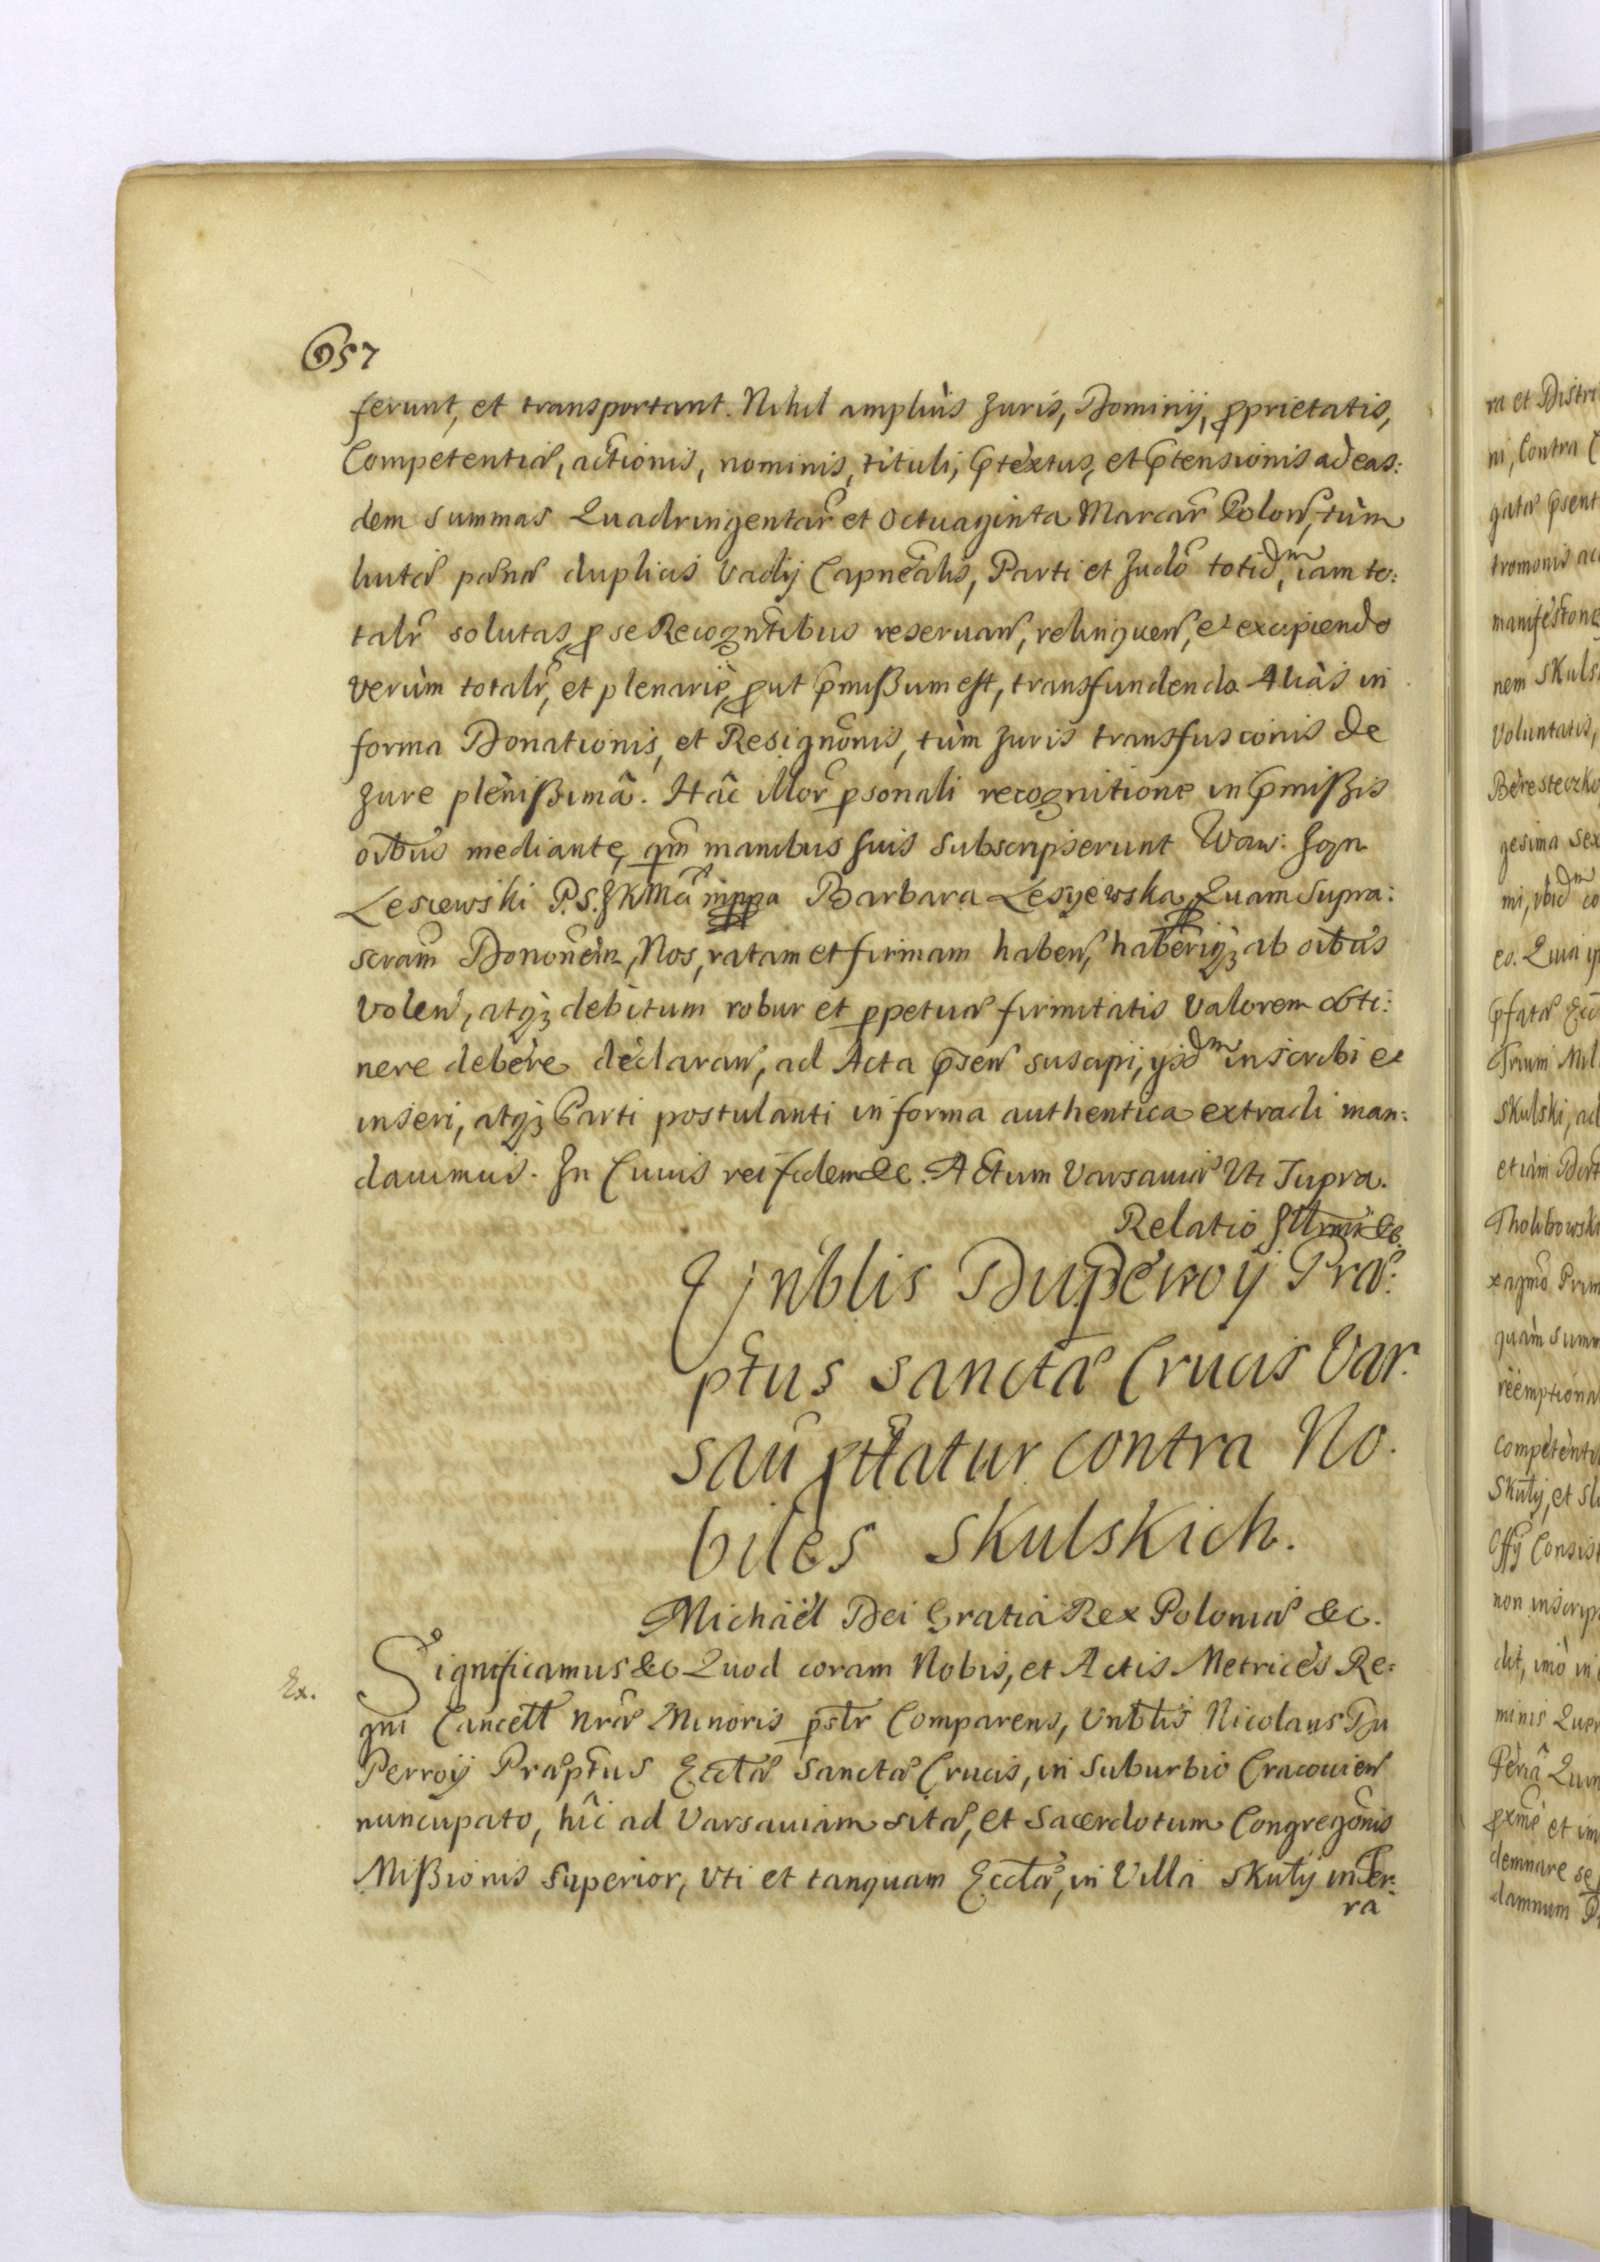 657
ferunt, et transportant. Nihil ampliùs Juris, Dominij, pprietatis,
Competentiæ, actionis, nominis, tituli, ptextus, et ptensionis ad eas:
dem summas Quadringentar et Octuaginta Marcar Polon, tùm
luitæ pænæ duplicis Vadij Capnealis, Parti et Judo totidm, iam to:
talr solutas, p se Recogntibus reseruan, relinquen, et excipiendo
verùm totalr, et plenariè, put pmißum est, transfundendo. Aliàs in
forma Donationis, et Resignonis, tùm Juris transfusionis de
Jure plenißimâ. Hâc illor psonali recognitione in pmißis
oibus mediante, qm manibus suis subscripserunt Waw: Jozn
Lesiewski P. S. J K Mci mppa Barbara Lesyewska. Quam supra:
scram Dononem, Nos, ratam et firmam haben, haberiq3 ab oibus
volen, atq3 debitum robur et ppetuæ firmitatis valorem obti:
nere debere declaran, ad Acta psen suscipi, ysdm inscribi et
inseri, atq3 Parti postulanti in forma authentica extradi man:
dauimus. In Cuius rei fidem &c. Actum Varsauiæ Vti Supra.
Relatio Illrmi &c.
Vnblis Du Perroy Præ:
ptus Sanctæ Crucis Var.
sau pttatur contra No.
biles Skulskich.
Michaël Dei Gratia Rex Poloniæ &c.
Ex.
Significamus &c Quod coram Nobis, et Actis Metrices Re:
gni Cancell nræ Minoris pslr Comparens, Vnblis Nicolaus Du
Perroy Præptus Ecclæ Sanctæ Crucis, in Suburbio Cracouien
nuncupato, hîc ad Varsauiam sitæ, et Sacerdotum Congregonis
Mißionis Superior, Vti et tanquam Ecclæ, in Villa Skuly in Ter:
ra